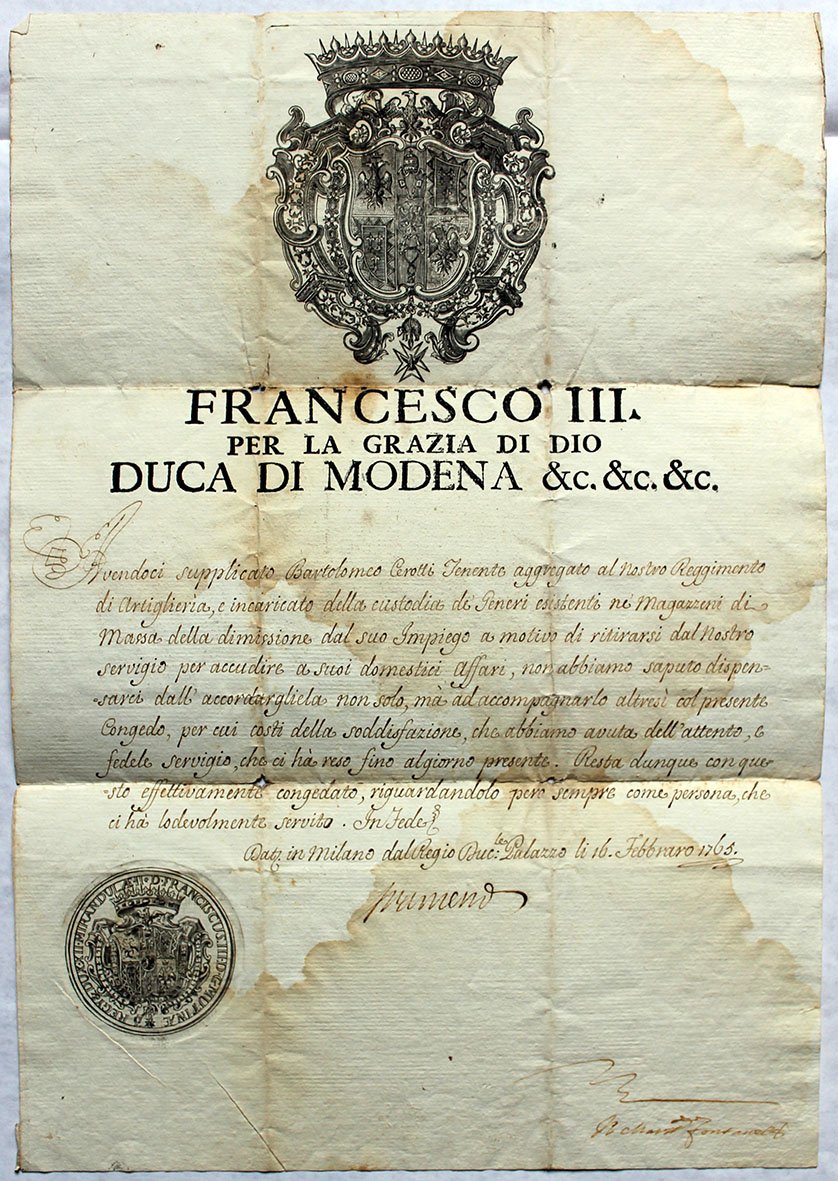 FRANCESCO III.
PER LA GRAZIA DI DIO
DUCA DI MODENA &c. &c. &c.
Avendoci supplicato Bartolomeo Cerotti Tenente aggregato al Nostro Reggimento
di Artiglieria, e incaricato della custodia de Generi esistenti ne Magazzeni di
Massa della dimissione dal suo Impiego a motivo di ritirarsi dal Nostro
servigio per accudire a suoi domestici Affari, non abbiamo saputo dispen-
-sarci dall' accordargliela non solo, mà ad accompagnarlo altresì col presente
Congedo, per cui costi della soddisfazione, che abbiamo avuta dell'attento, e
fedele servigio, che ci hà reso fino al giorno presente. Resta dunque con que-
-sto effettivamente congedato, riguardandolo però sempre come persona, che
ci hà lodevolmente servito. In Fede
Dat. in Milano dal Regio Duc.le Palazzo li 16. Febbraro 1765.
FRANCISCUS III D G MUTINÆ REGII Æ DUX MIRANDULÆ